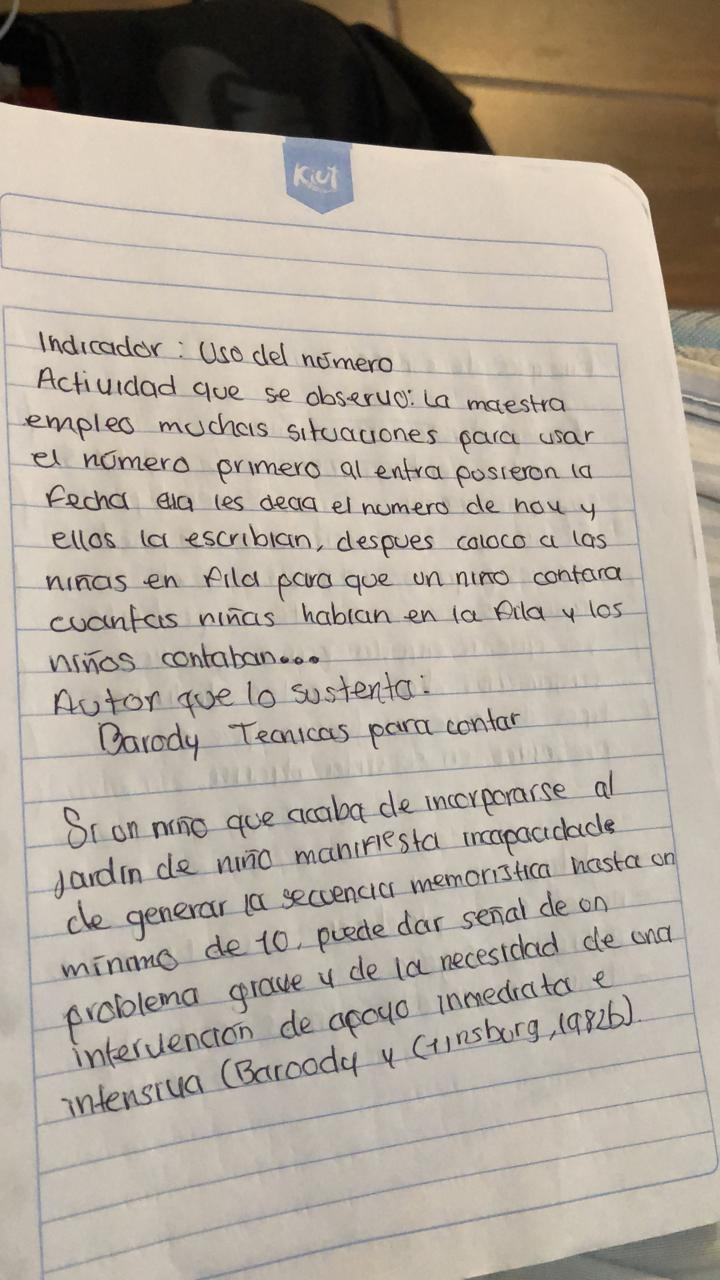 KiUT
Indicador: Uso del número
Actividad que se observo: La maestra
empleo muchas situaciones para usar
el número primero al entra posieron la
fecha ella les decia el numero de hoy y
ellos la escribian, despues coloco a las
niñas en fila para que un niño contara
cuantas niñas habian en la fila y los
niños contaban...
Autor que lo sustenta:
Barody Tecnicas para contar
Si un niño que acaba de incorporarse al
jardin de niño manifiesta incapacidade
de generar la secuencia memoristica hasta un
minimo de 10, puede dar señal de un
problema grave y de la necesidad de una
intervención de apoyo inmediata e
intensiva (Baroody y Ginsburg, 1982b).